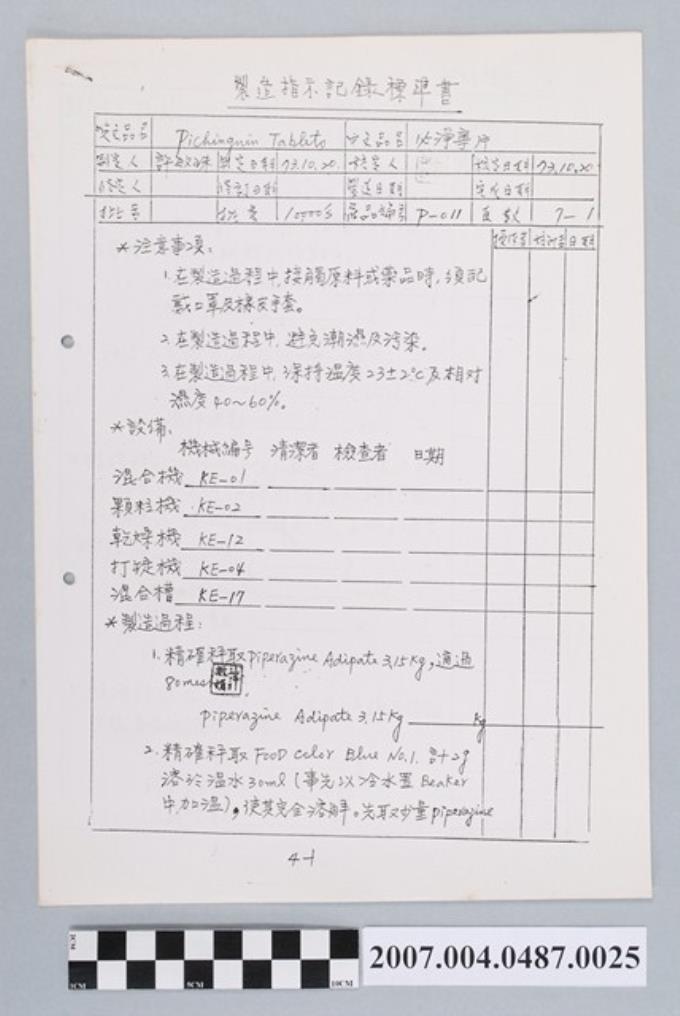 製造指示記錄標準書
英文品名 Pichinguin Tablets 中文品名 必淨寧片
制定人 制定日期 73.10.20. 核定人 核定日期 73.10.20
修定人 修訂日期 製造日期 完成日期
批号 批量 10000's 產品編号 P-011 頁數 7-1
操作者 核對者 日期
*注意事項:
1.在製造過程中,接觸原料或藥品時,須配
戴口罩及橡皮手套。
2.在製造過程中,避免潮濕及污染。
3.在製造過程中,保持溫度23±2℃及相對
濕度40~60%。
*設備:
機械編号 清潔者 檢查者 日期
混合機 KE-01
顆粒機 KE-02
乾燥機 KE-12
打錠機 KE-04
混合槽 KE-17
*製造過程:
1.精確秤取piperazine Adipate 3.15Kg,通過
80mesh
piperazine Adipate 3.15Kg Kg
2.精確秤取 FOOD color Blue No.1. 計2g
溶於溫水30ml(事先以冷水置Beaker
中加溫),使其完全溶解。先取少量piperazine
4-1
1CM 5CM 10CM
2007.004.0487.0025